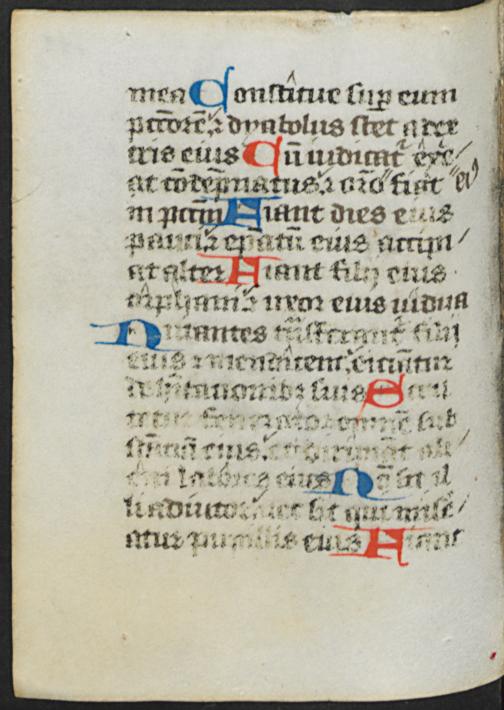 mea Constitue sup eum
pctorē ⁊ dyabolus stet a dex
tris eius Cū iudicat᷑ exe
at cōdēpnatus ⁊ orō fiat ei
in pctm̄ Fiant dies eius
pauci ⁊ epātū eius accipi
at alter Fiant filij eius
orphani ⁊ uxor eius uidua
Nutantes trāsferant᷑ filij
eius ⁊ mendicent eiciātur
de hītationibꝫ suis Scru
tetur fenerator omnē sub
stātiā eius diripiāt ali
eni labores eius Nō sit il
li adiutor nec sit qui mise
atur pupillis eius Fiant